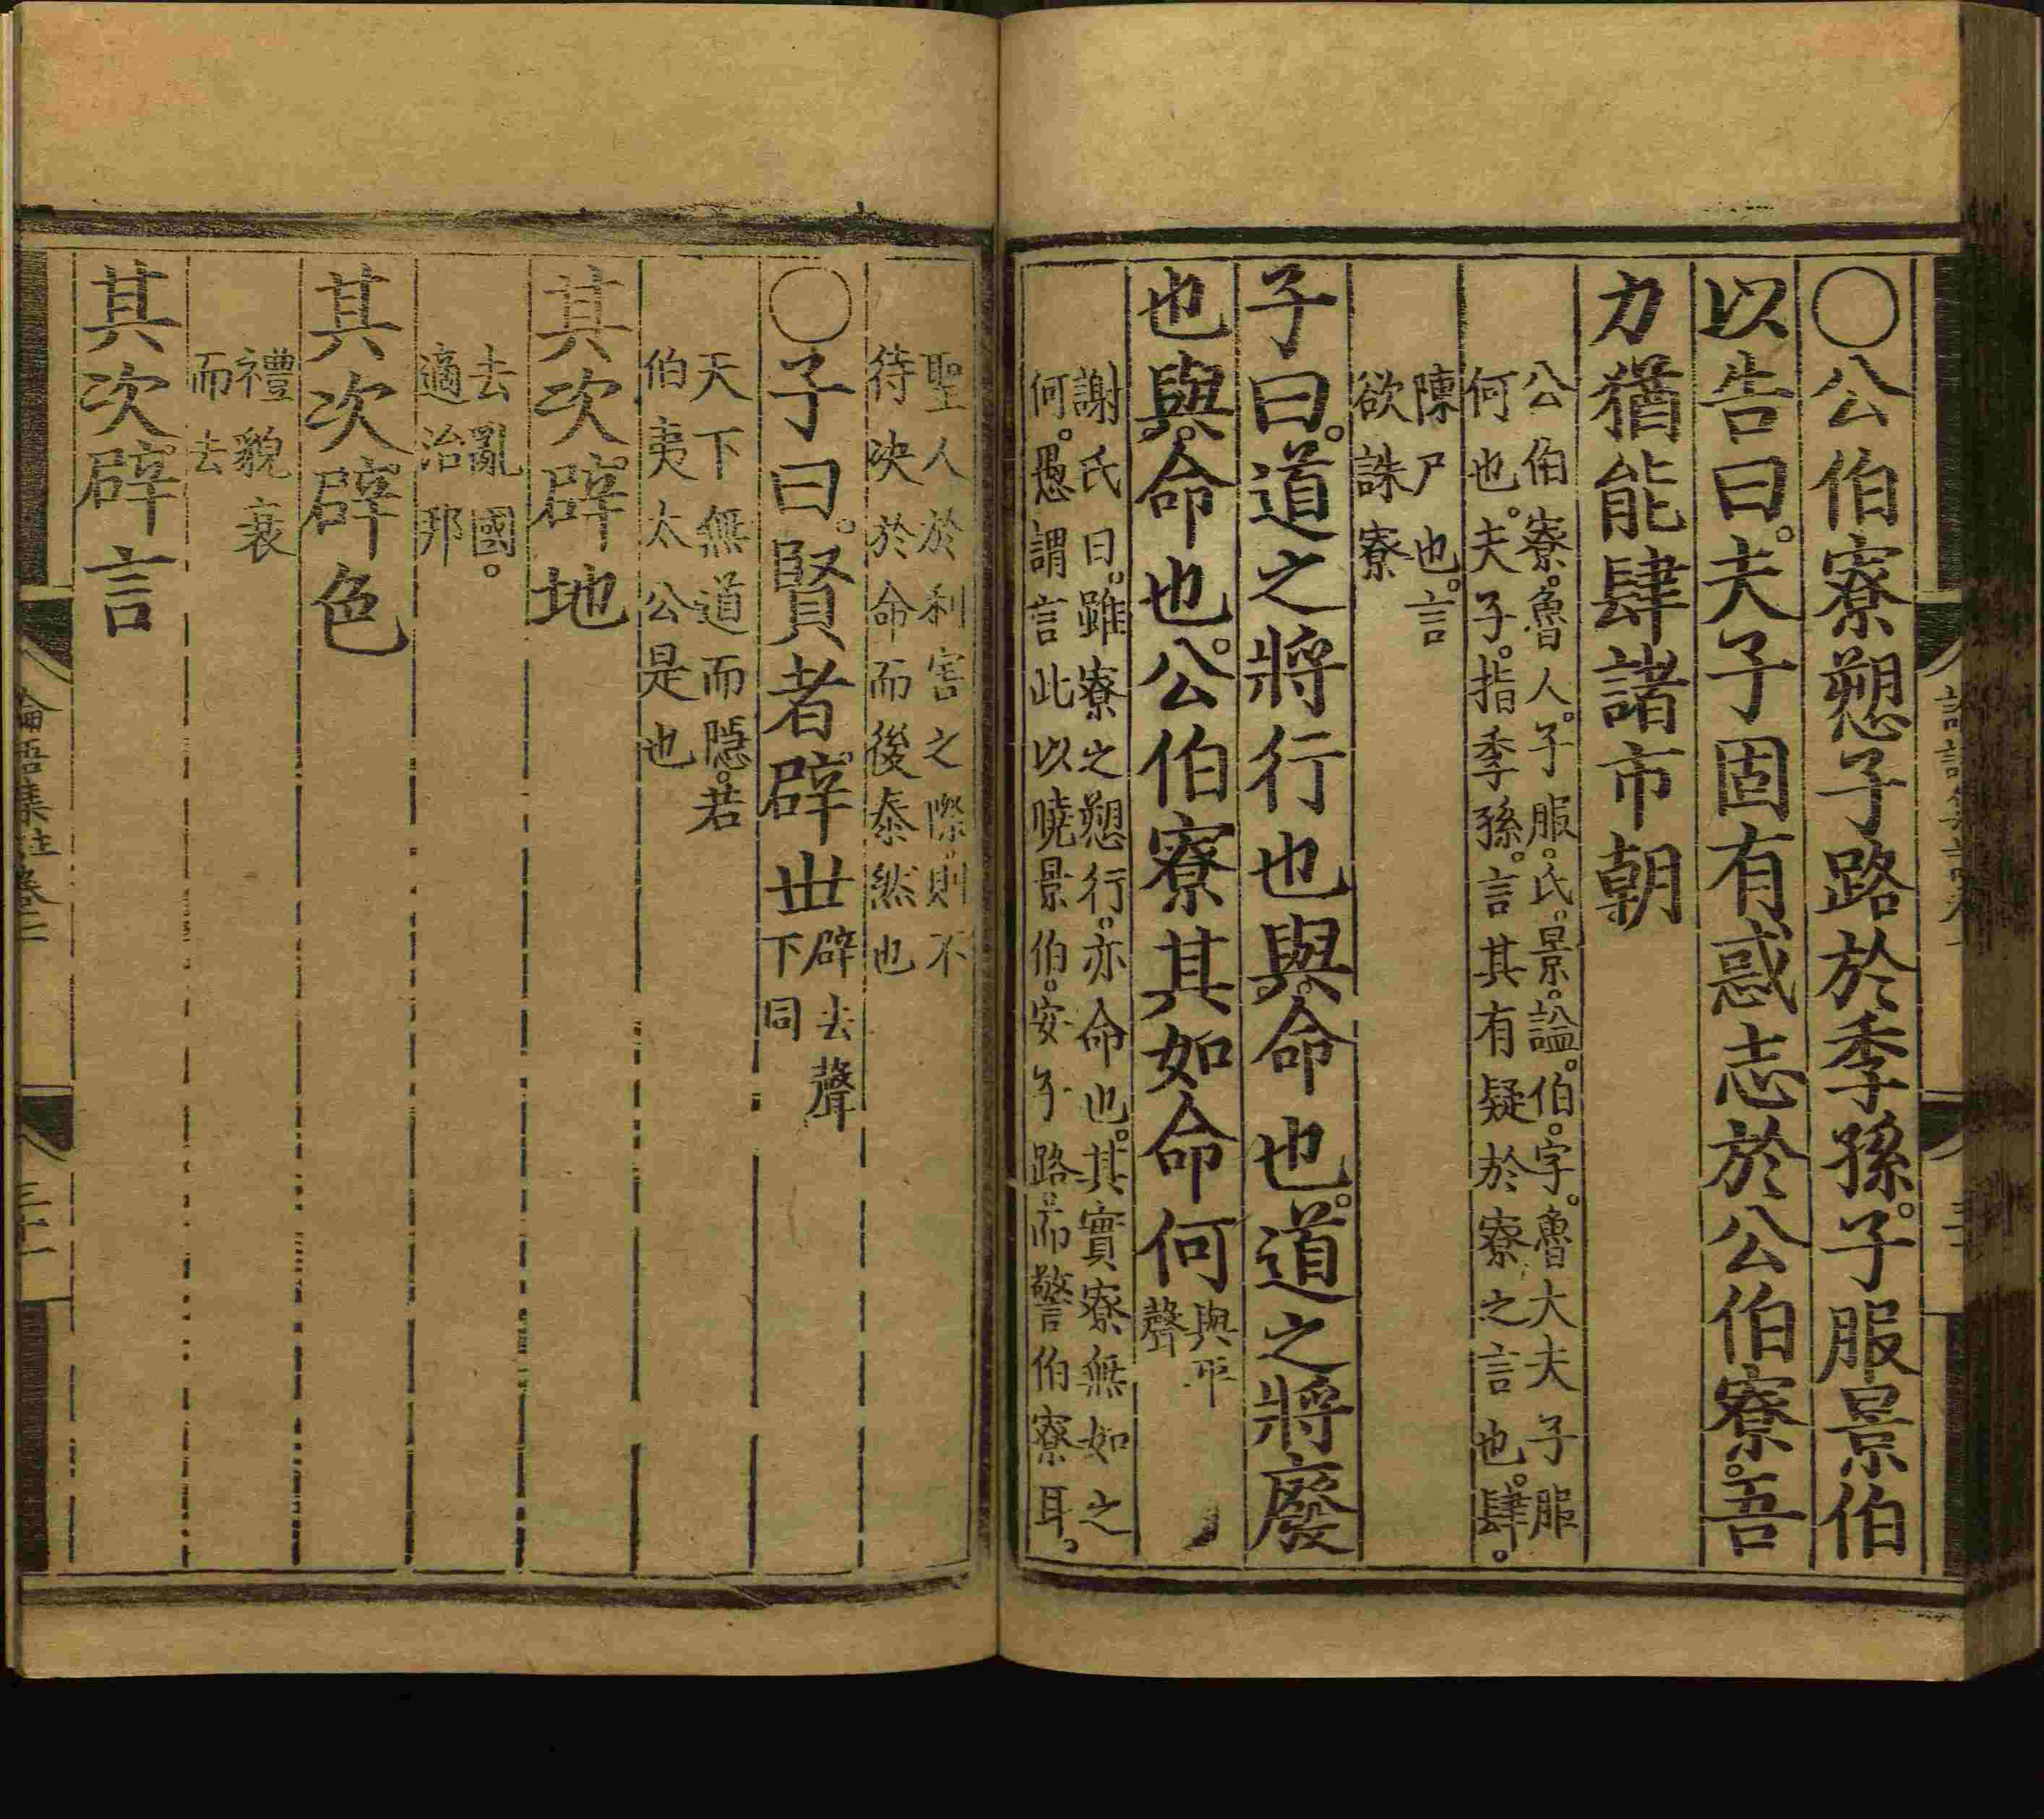 ○公伯寮愬子路於季孫。子服景伯
以告曰。夫子固有惑志於公伯寮。吾
力猶能肆諸市朝
公伯寮。魯人。子服。氏。景。諡。伯。字。魯大夫子服
何也。夫子。指季孫。言其有疑於寮之言也。肆。
陳尸也。言
欲誅寮
子曰。道之將行也與。命也。道之將廢
也與。命也。公伯寮其如命何
與平
聲
謝氏曰。雖寮之愬行。亦命也。其實寮無如之
何。愚謂言此以曉景伯。安子路。而警伯寮耳。
聖人於利害之際。則不
待決於命而後泰然也
○子曰。賢者辟世
辟去聲
下同
天下無道而隱。若
伯夷太公是也
其次辟地
去亂國。
適治邦
其次辟色
禮貌衰
而去
其次辟言
論語集註卷七